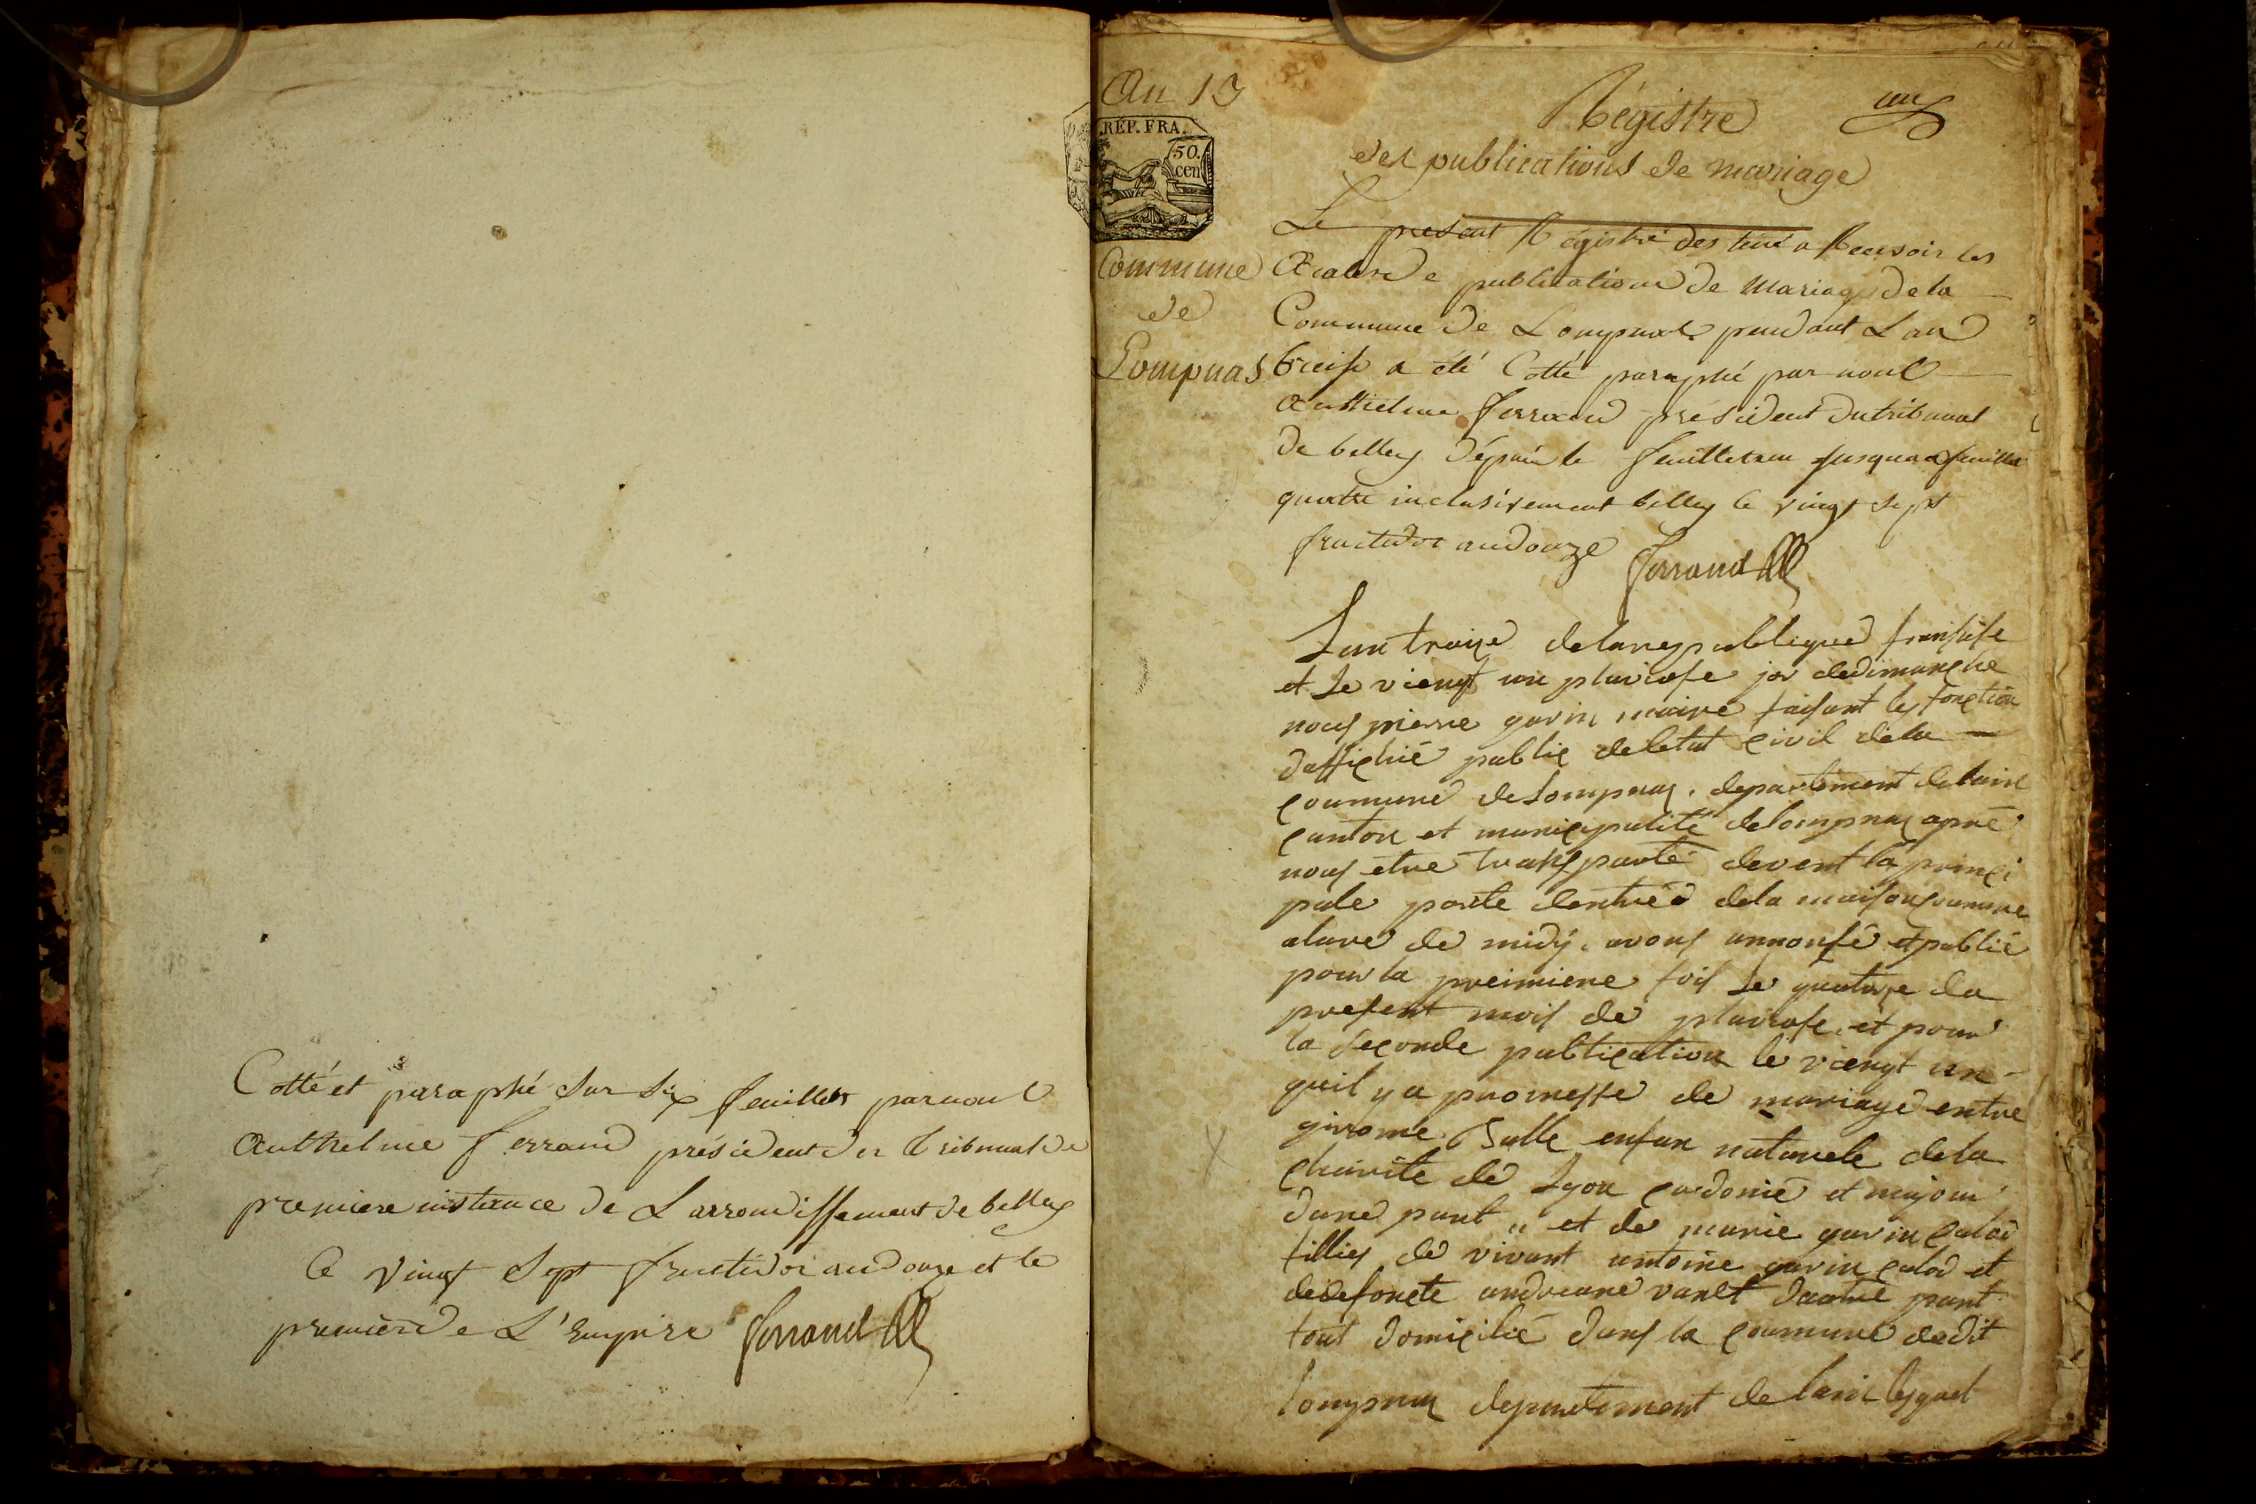 Cotté et paraphé sur six feuillets par nous
Anthelme ferrand président du tribunal de
premiere instance de L'arrondissement de belley
le vingt sept fructidor an douze et le
premier de L'Empire ferrand
An 13
REP. FRA.
50.
cen
Commune
de
Lompnas
un
Régistre
des publications de mariage
Le présent Régistre destiné a Recevoir les
Actes de publications de Mariage de la
Commune de Lompnas pendant L'an
treise a été Cotté paraphé par nous
Anthelme ferrand président du tribunal
de belley dépuis le feuillet un jusqua feuillet
quatre inclusivement belley le vingt sept
fructidor an douze ferrand
Lan traize delarepublique fransaise
et le viengt un pluviose jor dedimanche
nous pierre gavin maire faisant les fonction
daffichié public deletat civil dela
coumune delompnas, departement delain
canton et municipalité delompnas apré
nous etre transparté devent la princi
pale porte dentréé dela maison coumune
alure de midÿ, avons annonsé et publié
pour la preimiere fois le quatorze du
present mois de pluviose, et pour
la seconde publication le viengt un
queil y a promesse de mariage entre
girome Salle enfan naturele dela
charite de Lyon cordonié et majour
dune part, et de marie gavin calod
fillies de vivant antoine gavin calod et
dedefoncte andreane varet dautre part
tout domicilié dans la coumune dedit
lompnas departement de lain lesquel